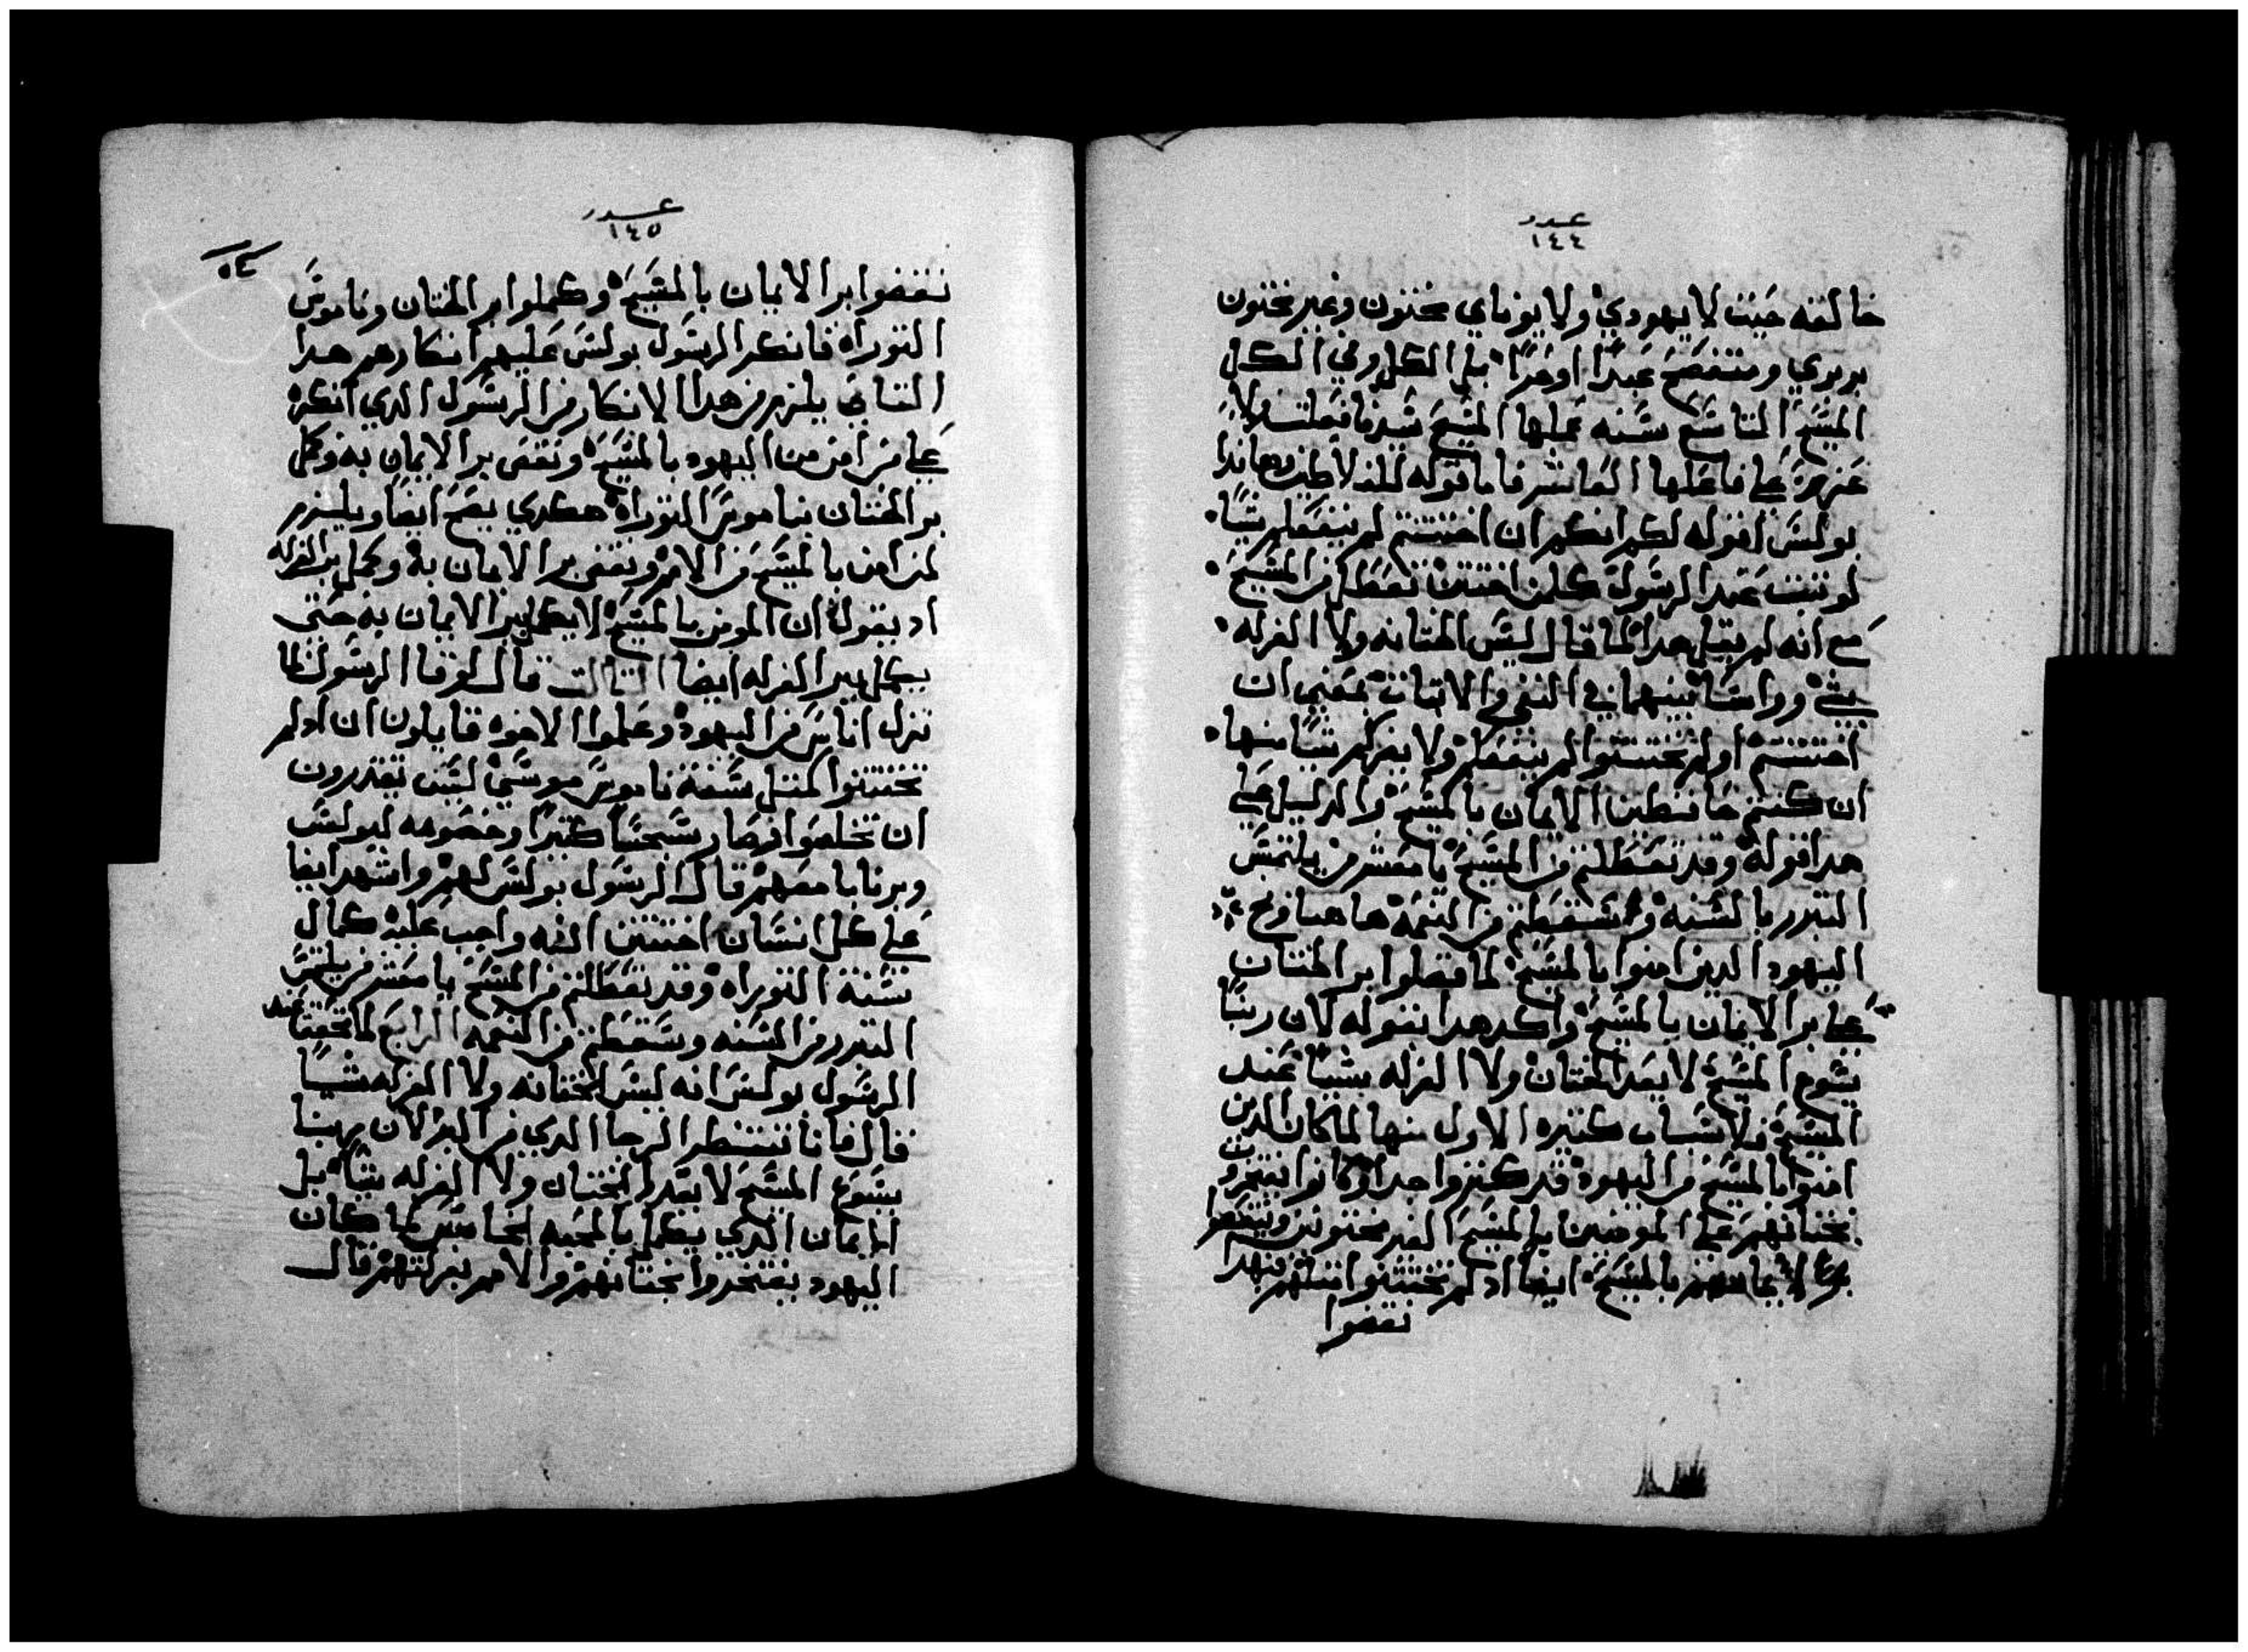 عدد
١٤٤
خالقه حيث لا يهودي ولا يوناي مختون وغير مختون
بربري ومتفصح عبدًا او حرًا بل الكل وفي الكل
المسيح التاسع سنه عملها المسيح
علي فاعلها العاشر فاما قوله للغلاطيين هاندا
بولس اقوله لكم انكم ان اختتنتم لم ينفعكم شيًا
لو تبت عند الرسول كلمن اختتن تعطل من المسيح
مع انه لم يقبل هدا لما قال ليس الختانه ولا الغرله
شي وواسا بينهما في النفي والاتبات بمعني ان
اختتنتم او لم تختتنوا لم ينفعكم ولا يضركم شيًا منها
ان كنتم حافظين الايمان بالمسيح والدليل علي
هدا قوله وقد تعطلتم من المسيح يا معشر من يلتمس
التبرر بالسنه وسقطتم من النعمة هاهنا وبخ
اليهود الدين امنوا بالمسيح لما فضلوا بر الختان
علي بر الايمان بالمسيح واكد هدا بقوله لان ربنا
يسوع المسيح لا يعد الختان ولا الغرله بشيًا عند
المسيح فلاسباب كتيره الاول منها لما كان الدين
امنوا بالمسيح من اليهود قد كتروا جدا وكانوا يفتخرون
بختانهم علي المومنين بالمسيح الغير مختونين
بالمسيح ايضا اد لم تختتنوا متلهم فبهدا
نقضوا
عدد
١٤٥
٥٤
نقضوا بر الايمان بالمسيح وكملوا بر الختان وناموس
التوراه فانكر الرسول بولس عليهم انكارهم هدا
التاني يلزم من هدا الانكار من الرسول الدي انكره
علي من امن من اليهود بالمسيح ونقض بر الايمان به وكمل
بر الختان بناموس التوراه هكدي يصح ايضا ويلزم
لمن امن بالمسيح من الامم ونقض بر الايمان به وكمل بر الغرله
اد يقول ان المومن بالمسيح لا يكمل ببر الايمان به حتي
يكمل ببر الغرله ايضا التالت قال لوقا الرسول لما
نزل اناس من اليهود وعلموا الاخوه قايلون ان ادلم
تختتنوا كمتل سنة ناموس موسي ليس تقدرون
ان تخلصوا فصار سجسًا كتيرًا وخصومه لبولس
وبرنابا معهم قال الرسول بولس لهم واشهد ايضا
علي كل انسان اختتن انه واجب عليه كمال
سنة التوراه وقد تعطلتم من المسيح يا معشر من يلتمس
التبرر من السنه وسقطتم من النعمه الرابع لما تحقق عند
الرسول بولس انه ليس الختانه ولا الغرله شيًا
قال فانا ننتظر الرجا الدي من البر لان ربنا
يسوع المسيح لا يعد الختان ولا الغرله شيًا بل
الايمان الدي يكمل بالمحبه الخامس لما كان
اليهود يفتخروا بختانهم والامم بغرلتهم قال